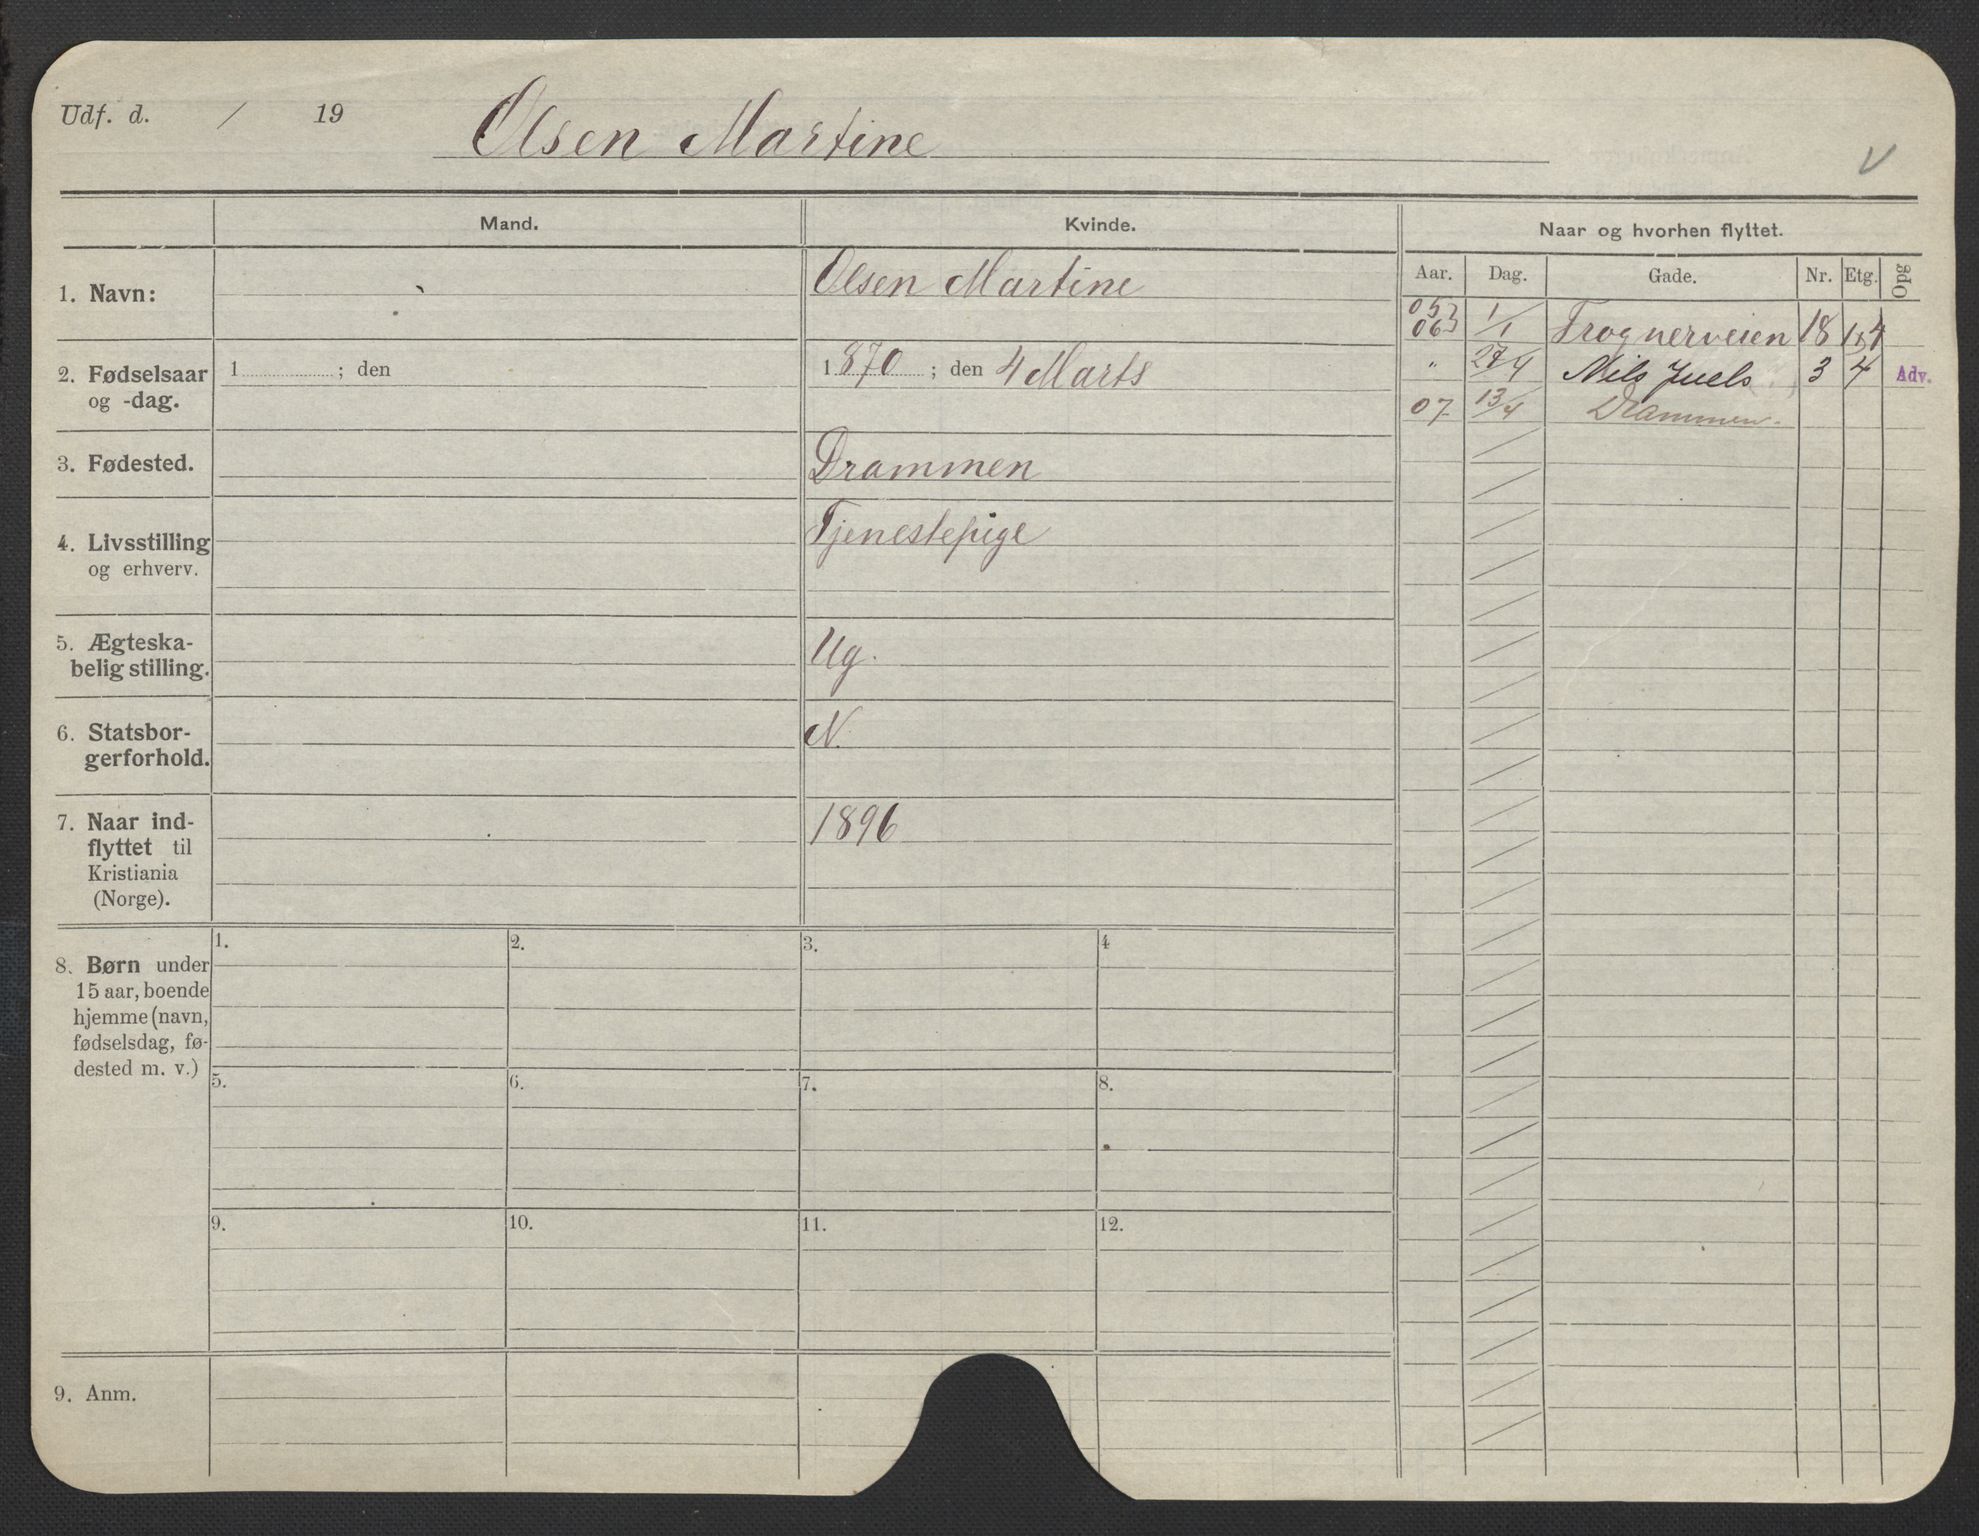 Udf. d. / 19
Olsen Martine
V
Mand.
Kvinde.
Naar og hvorhen flyttet.
Aar. Dag. Gade. Nr. Etg. Opg
1. Navn:
Olsen Martine
2. Fødselsaar
og -dag.
1 ; den
1870 ; den 4 Marts
3. Fødested.
Drammen
4. Livsstilling
og erhverv.
Tjenestepige
5. Ægteska-
belig stilling.
Ug.
6. Statsbor-
gerforhold.
N.
7. Naar ind-
flyttet til
Kristiania
(Norge).
1896
05
06 1/1 Trognerveien 18
" 27/4 Nils Juels 3 4 Adv.
07 13/4 Drammen.
8. Børn under
15 aar, boende
hjemme (navn,
fødselsdag, fø-
dested m. v.)
1. 2. 3. 4
5. 6. 7. 8.
9. 10. 11. 12.
9. Anm.